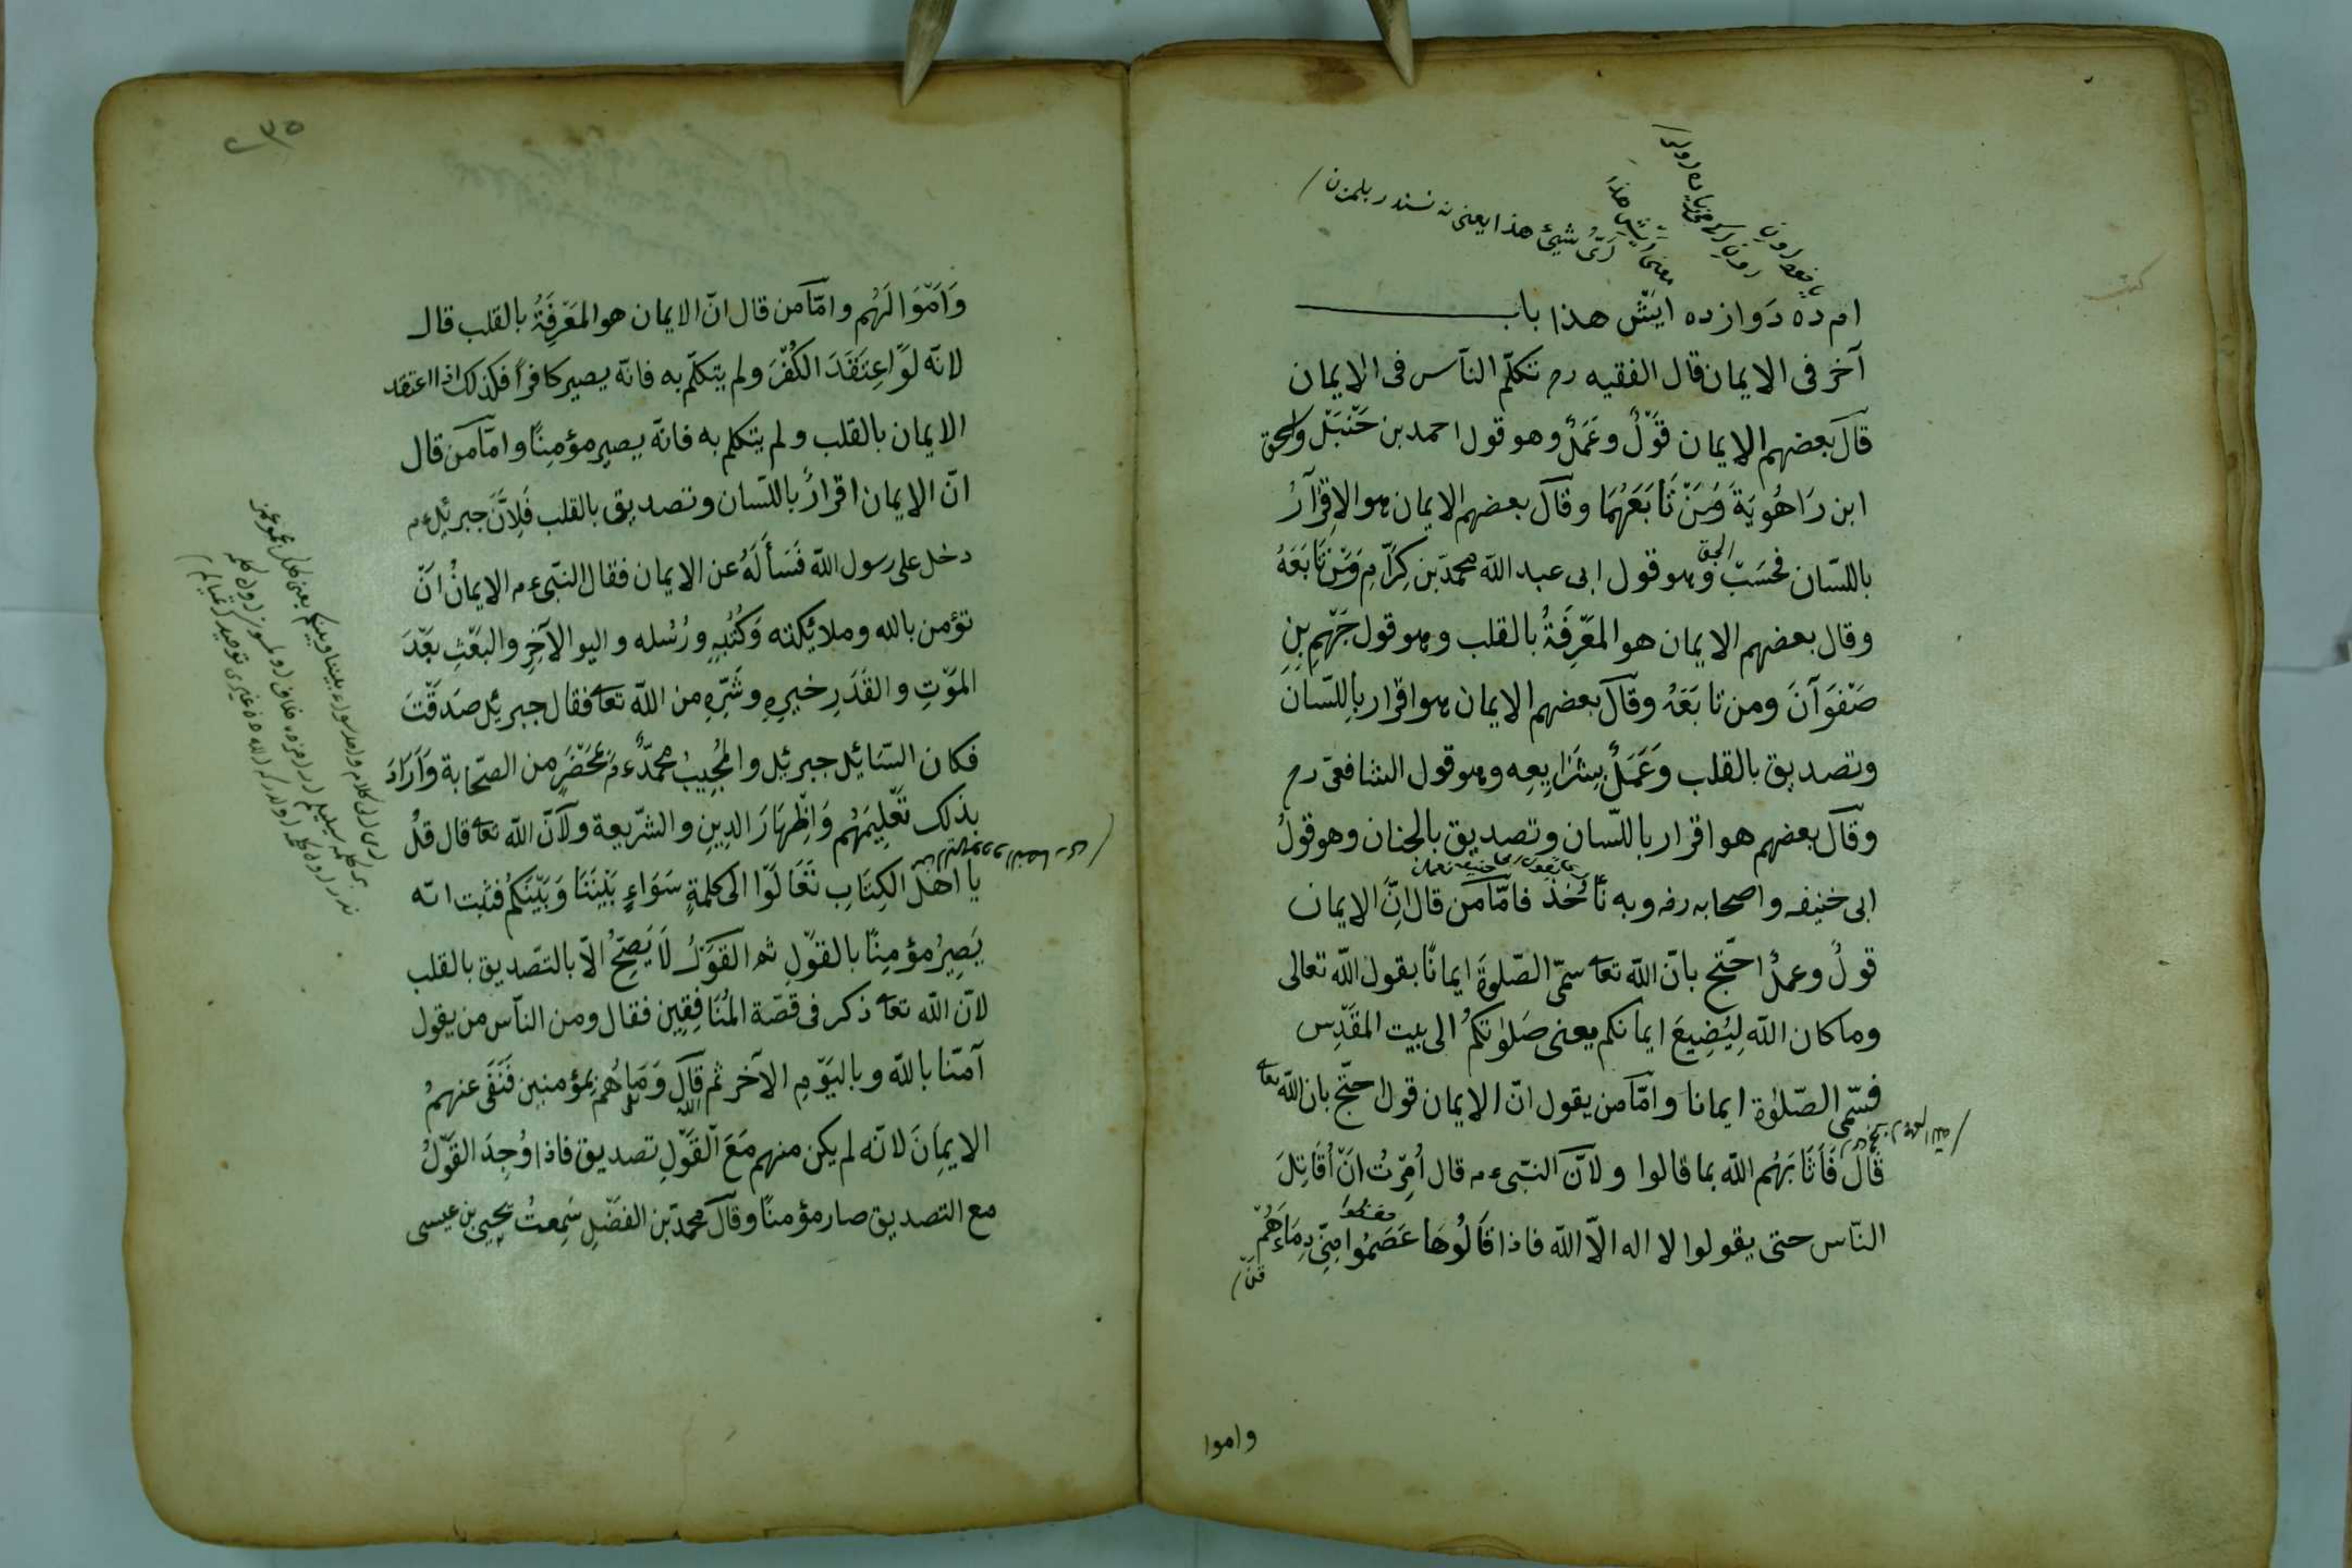 ام ده دَوازده ايَشّ هذا باب
آخر فى الايمان قال الفقيه رح تكلّم النّاس فى الايمان
قال بعضهم الايمان قَوْلٌ وعَمَلٌ وهو قول احمد بن حَنْبَلْ واسحق
ابن رَاهُويَةَ وَمَنْ تَابَعَهُمَا وقال بعضهم الايمان هو الاِقْرَارُ
باللسّان فحَسَبْ وهو قول ابى عبد الله محمّد بن كِرَّامِ وَمَنْ تَابَعَهُ
وقال بعضهم الايمان هو المَعْرِفَةُ بالقلب وهو قول جَهْمِ بنِ
صَفْوَانَ ومن تابَعَهُ وقال بعضهم الايمان هو اقرار باللّسان
وتصديق بالقلب وَعَمَلٌ بِشَرَايِعِه وهو قول الشافعىّ رح
وقال بعضهم هو اقرار باللّسان وتصديق بالجنان وهو قولُ
ابى خنيفه واصحابه رضه وبه نَأْخُذُ فامّا من قال اِنَّ الايمان
قولٌ وعملٌ احتّج بانّ الله تعا سمّى الصّلوةَ ايمانًا بقول الله تعالى
وما كان الله لِيُضِيعَ ايمانكم يعنى صَلوٰتكُم الى بيت المقَدِس
فسمّى الصّلوٰة ايمانا وامّا من يقول انّ الايمان قول احتّج بان الله تعا
قَالَ فَاَثَابَهُم الله بما قالوا ولانّ النبّى ء م قال اُمِرْتُ انْ اُقَاتِلَ
النّاس حتى يقولوا لا اله الاّ الله فاذا قَالُوهَا عَصَمُوا مِنّى دِمَاءَهُمْ
وامَوا
وَاَمْوَالَهُم وامّا من قال انّ الايمان هو المَعْرِفَةُ بالقلب قال
لانّه لَوْ اعِتَقَدَ الكُفْرَ ولم يتكلّم به فانّه يصير كافراً فكذلك اذا اعتقد
الايمان بالقلب ولم يتكلم به فانّه يصير مؤمِنًا وامّا من قال
انّ الايمان اقرارٌ باللّسان وتصديق بالقلب فَلِاَنَّ جبرئيل ء م
دخل على رسول الله فَسَأَلَهُ عن الايمان فقال النبّى ء م الايمانُ انْ
تؤمن بالله وملائكته وَكُتُبِهِ ورُسُله واليو الآخِرِ والبَعْثِ بعْدَ
المَوْتِ والقَدَرِ خيرِهِ وشَرِّهِ من الله تعا فقال جبرئيل صَدَقْتَ
فكان السّائِل جبرئِل والمُجِيبُ محمّدٌ ء م بمَحْضَرٍ من الصّحابة وَاَرَادَ
بذلك تَعْلِيمَهُم وَاِظْهَارَ الدينِ والشّريعة ولانّ الله تعا قال قلْ
يا اهلَ الكِتَابِ تَعَالَوْا الى كلمةٍ سَوَاءٍ بَيْنَنَا وَبَيْنَكُم فثبت انّه
يَصِيرُ مؤمِنًا بالقوْلِ ثم القَوْلُ لَا يَصِحُّ الاّ بالتّصديق بالقلب
لانّ الله تعا ذكر فى قصّة المُنَافِقِين فقال ومن النّاس من يقول
آمنّا بالله وباليَوْمِ الآخر ثم قال وَمَا هُمْ بمؤمنين فَنَفَى عنهمُ
الايمِانَ لانّه لم يكن منهم مَعَ القَوْلِ تصديق فاذا وُجِدَ القَوْلُ
مع التصديق صار مؤمنًا وقال محمّد بن الفضْلِ سَمِعتُ يَحِيى بن عيسى